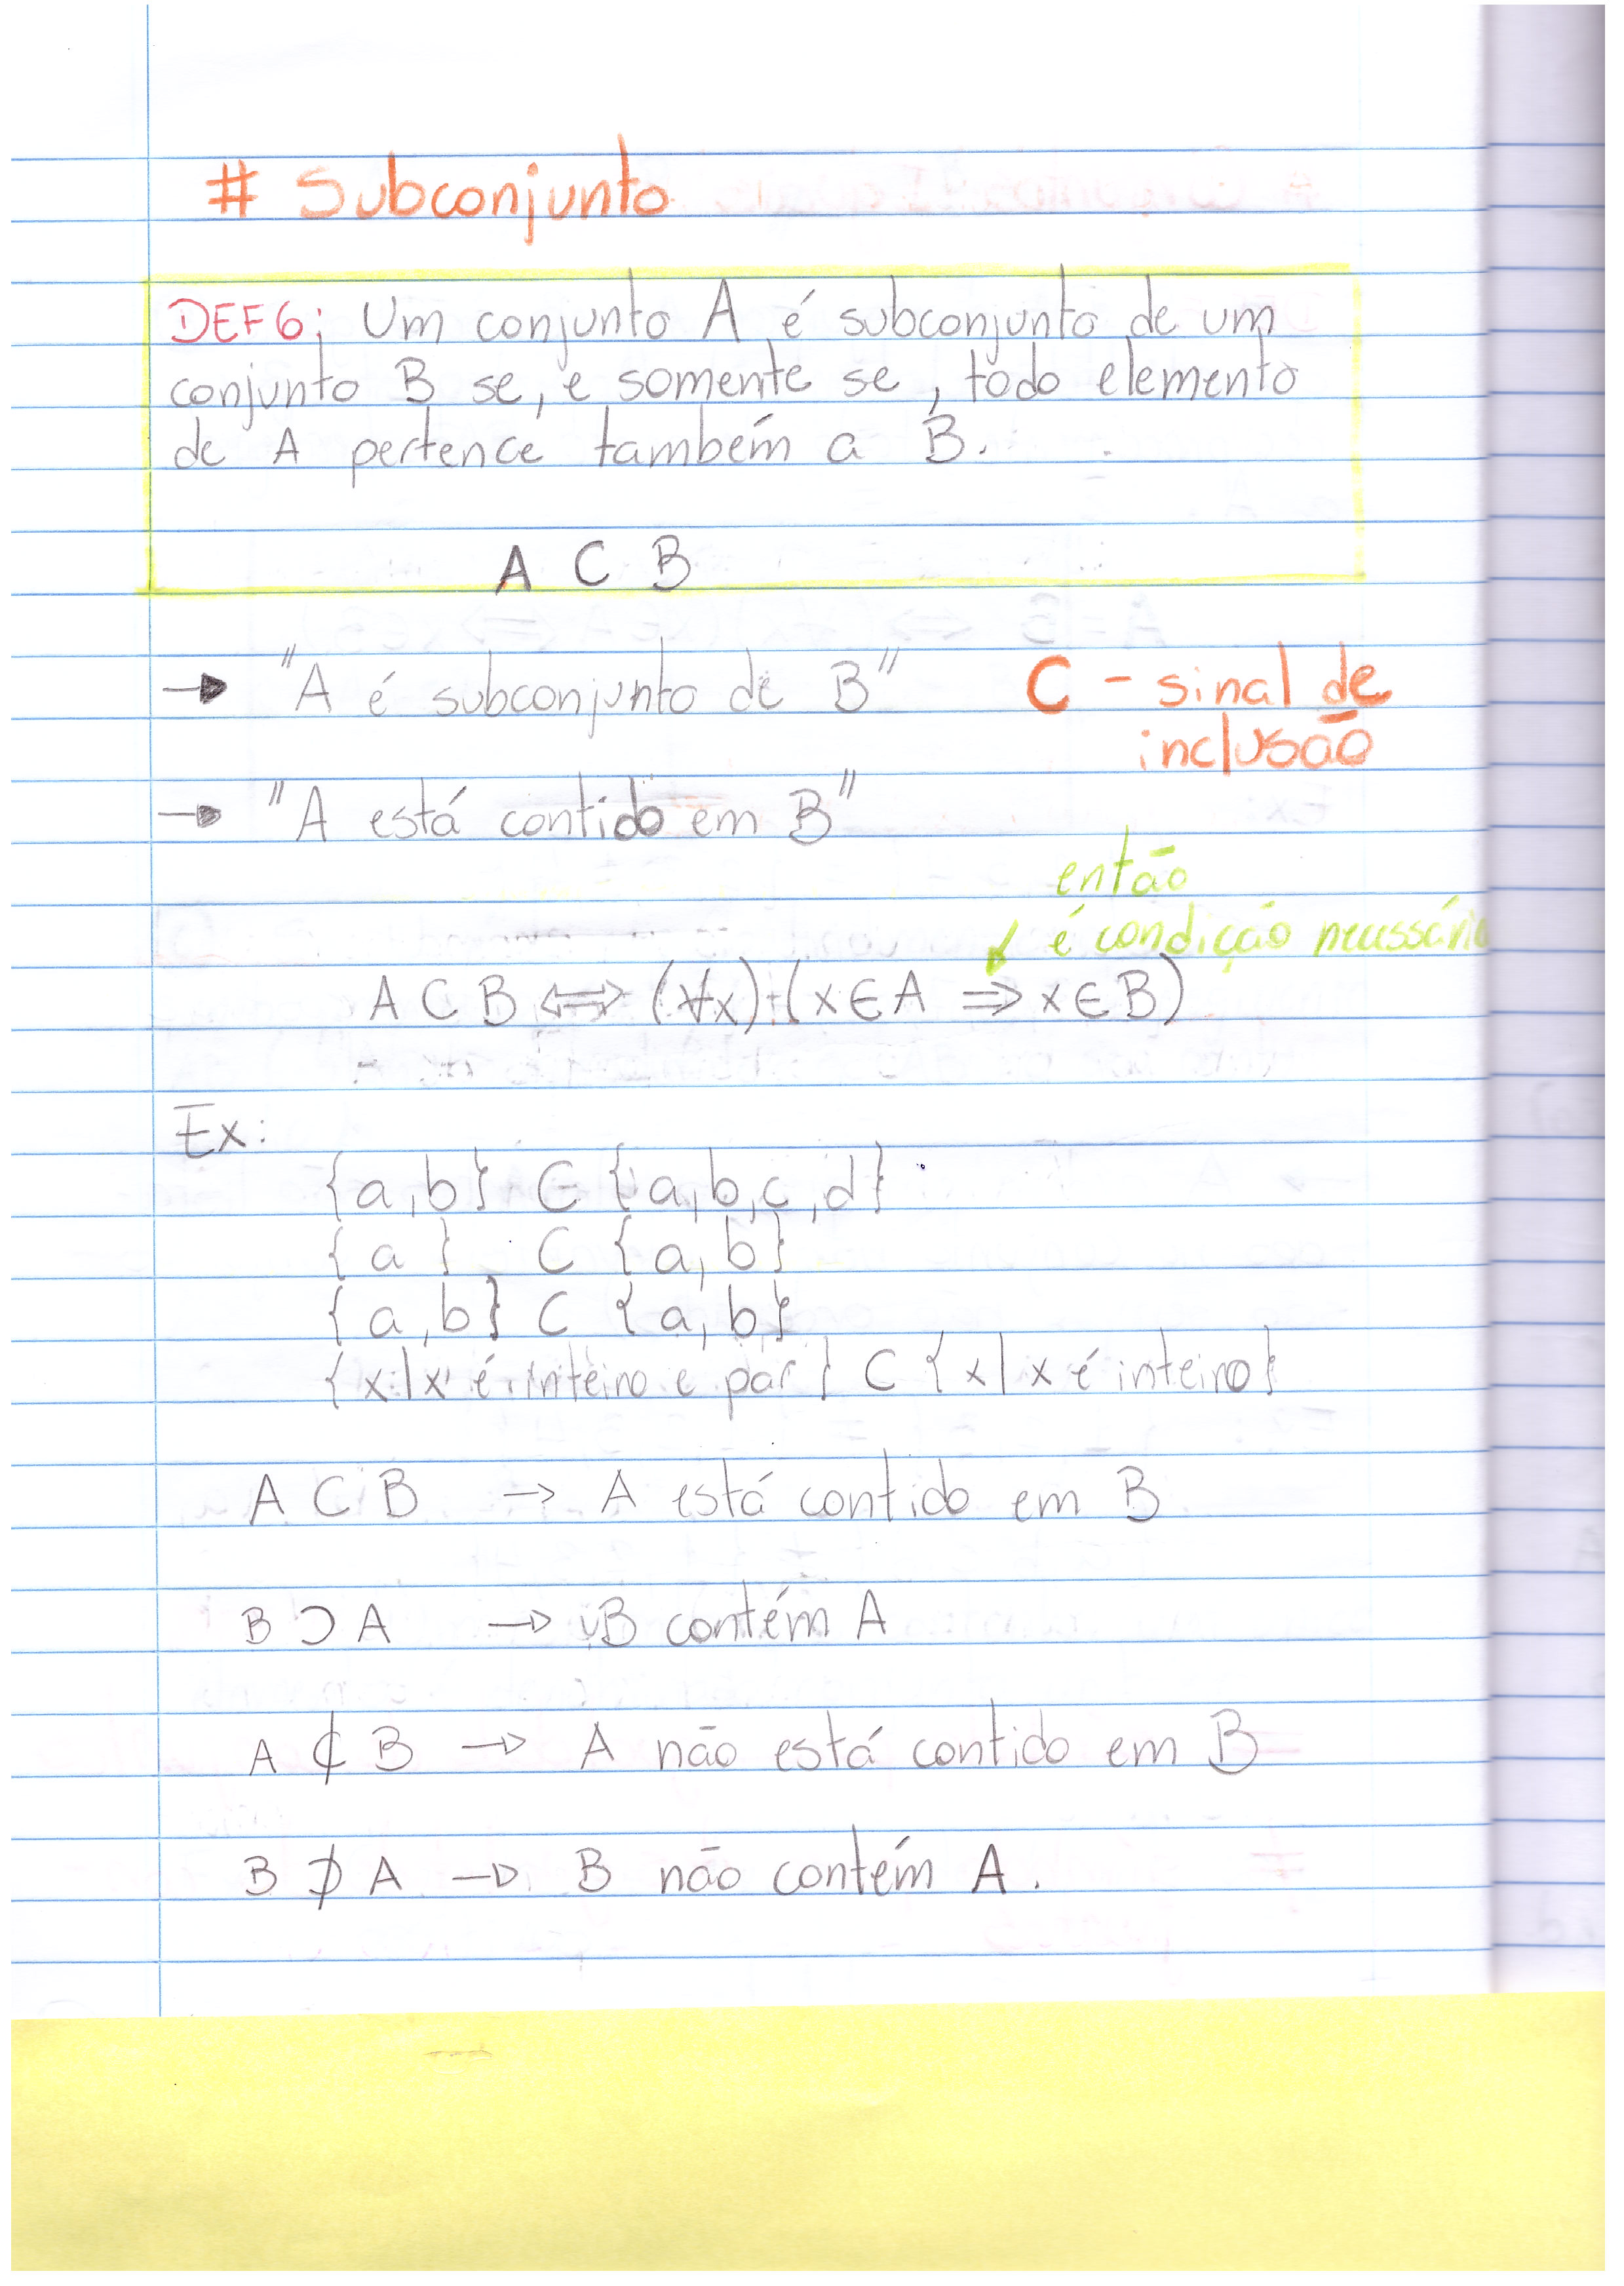 # Subconjunto
DEF6: Um conjunto A é subconjunto de um
conjunto B se, e somente se, todo elemento
de A pertence também a B.
A ⊂ B
→ "A é subconjunto de B"
⊂ - sinal de
inclusão
→ "A está contido em B"
então
é condição necessária
A ⊂ B ⟺ (∀x) (x ∈ A ⇒ x ∈ B)
Ex:
{a, b} ⊂ {a, b, c, d}
{a} ⊂ {a, b}
{a, b} ⊂ {a, b}
{x | x é inteiro e par} ⊂ {x | x é inteiro}
A ⊂ B → A está contido em B
B ⊃ A → B contém A
A ⊄ B → A não está contido em B
B ⊅ A → B não contém A.